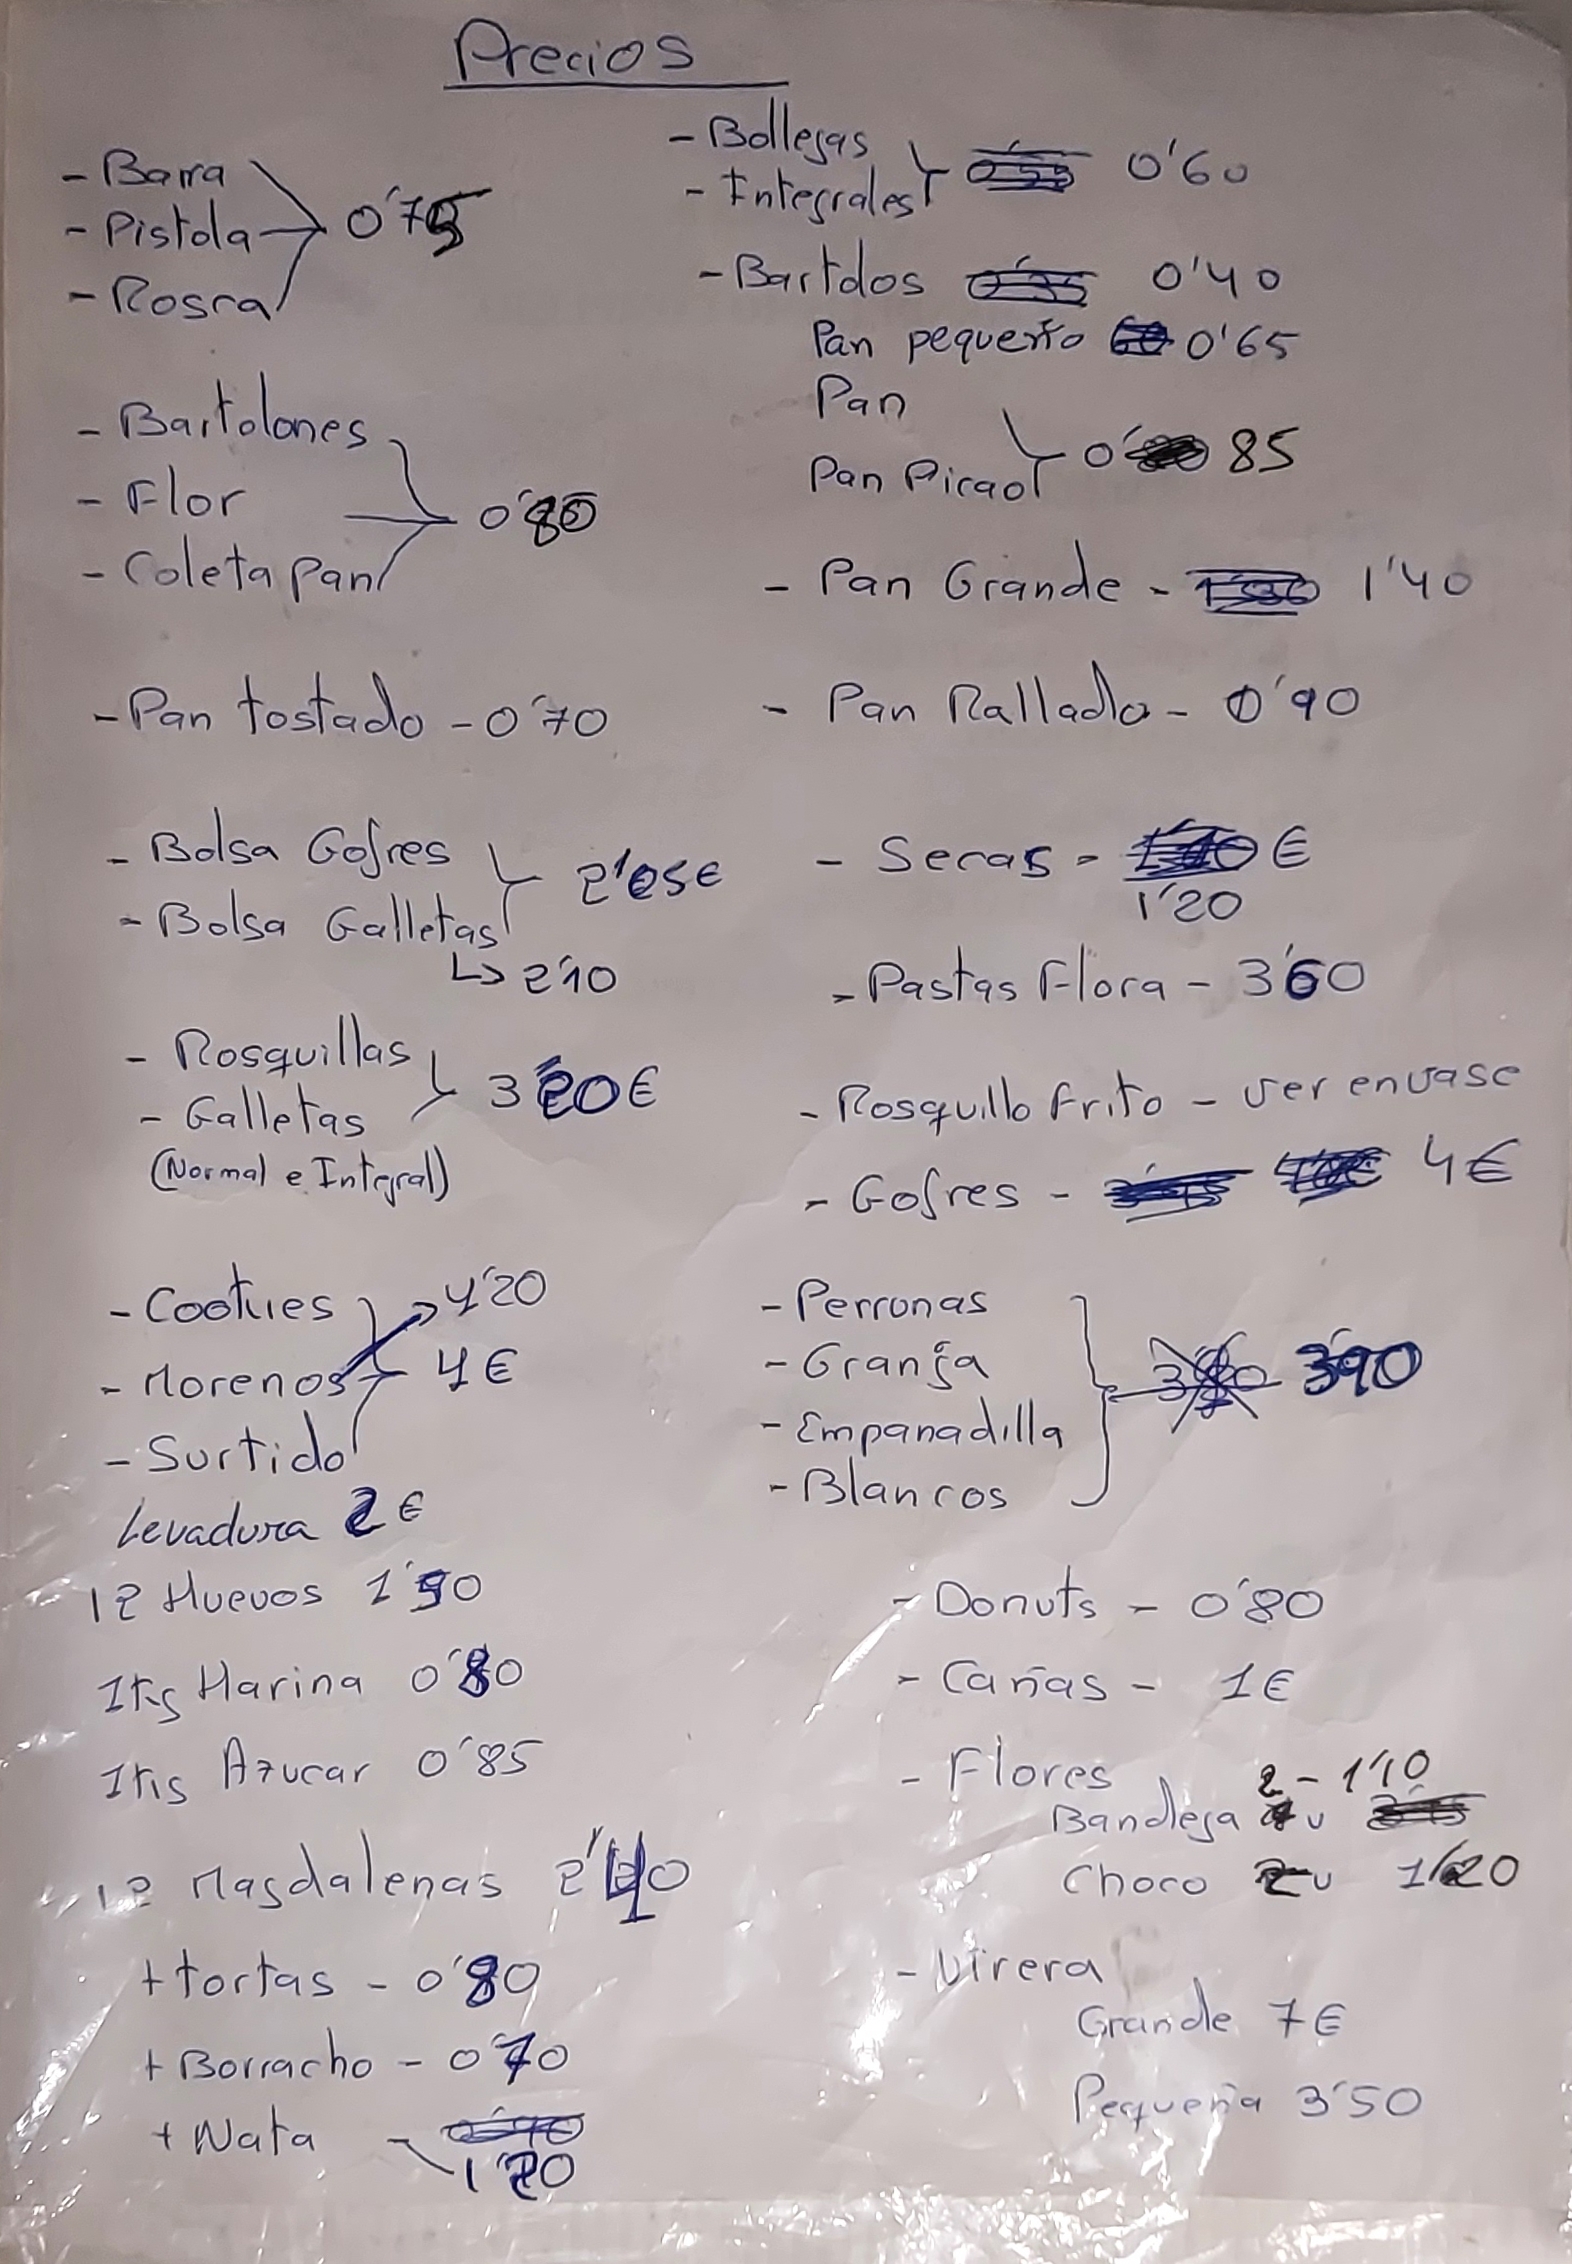 Precios
- Barra
- Pistola
- Rosca
0'75
- Bartolones
- Flor
- Coleta Pan
0'80
- Pan tostado - 0'70
- Bolsa Gofres
- Bolsa Galletas
2'05€
↳ 2'10
- Rosquillas
- Galletas
(Normal e Integral)
3'20€
- Cookies
- Morenos
- Surtido
4'20
4€
Levadura 2€
12 Huevos 1'90
1Kg Harina 0'80
1Kg Azucar 0'85
12 Magdalenas 2'40
+ tortas - 0'80
+ Borracho - 0'70
+ Nata - 1'20
- Bollejas
- Integrales
0'60
- Bartolos 0'40
Pan pequeño 0'65
Pan
Pan Picao
0'85
- Pan Grande - 1'40
- Pan Rallado - 0'90
- Secas - €
1'20
- Pastas Flora - 3'60
- Rosquillo frito - ver envase
- Gofres - 4€
- Perronas
- Granja
- Empanadilla
- Blancos
3'90
- Donuts - 0'80
- Cañas - 1€
- Flores 2 - 1'10
Bandeja u
Choco 2u 1'20
- Virera
Grande 7€
Pequeña 3'50